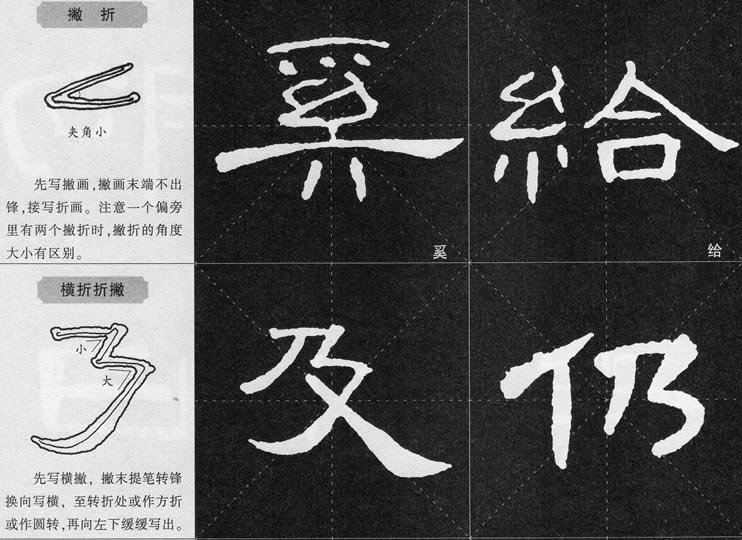 撇 折
夹角小
先写撇画,撇画末端不出
锋,接写折画。注意一个偏旁
里有两个撇折时,撇折的角度
大小有区别。
奚
奚
給
给
横折折撇
小
大
先写横撇，撇末提笔转锋
换向写横，至转折处或作方折
或作圆转,再向左下缓缓写出。
及
仍